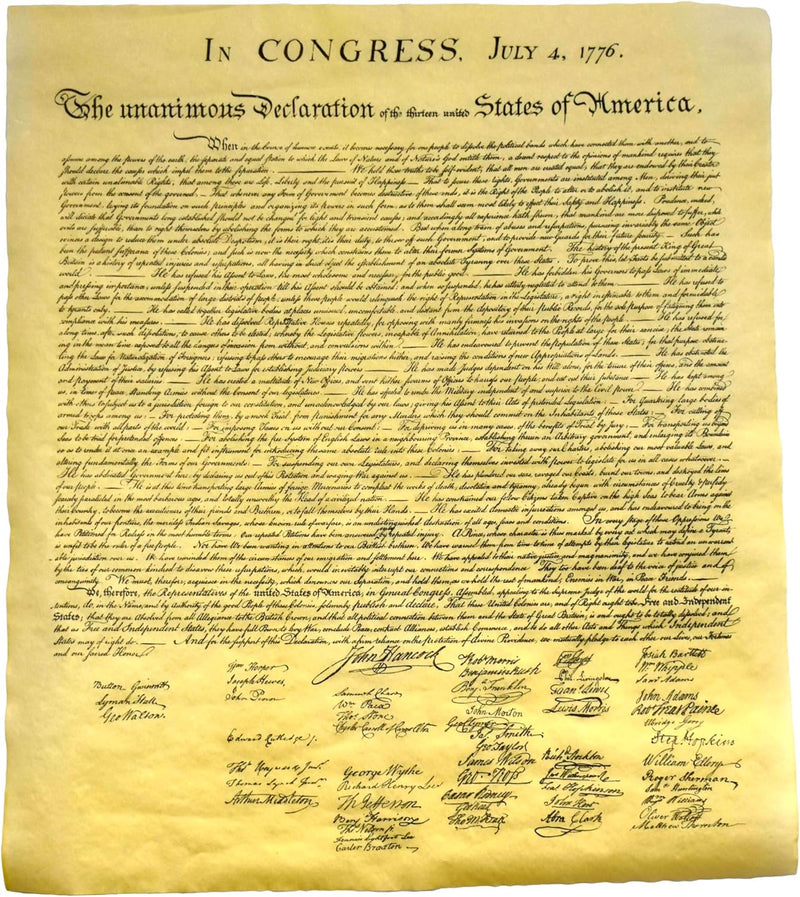 IN CONGRESS, JULY 4, 1776.
The unanimous Declaration of the thirteen united States of America,
When in the Course of human events, it becomes necessary for one people to dissolve the political bands which have connected them with another, and to
assume among the powers of the earth, the separate and equal station to which the Laws of Nature and of Nature's God entitle them, a decent respect to the opinions of mankind requires that they
should declare the causes which impel them to the separation. — We hold these truths to be self-evident, that all men are created equal, that they are endowed by their Creator
with certain unalienable Rights, that among these are Life, Liberty and the pursuit of Happiness. — That to secure these rights, Governments are instituted among Men, deriving their just
powers from the consent of the governed, — That whenever any Form of Government becomes destructive of these ends, it is the Right of the People to alter or to abolish it, and to institute new
Government, laying its foundation on such principles and organizing its powers in such form, as to them shall seem most likely to effect their Safety and Happiness. Prudence, indeed,
will dictate that Governments long established should not be changed for light and transient causes; and accordingly all experience hath shewn, that mankind are more disposed to suffer, while
evils are sufferable, than to right themselves by abolishing the forms to which they are accustomed. But when a long train of abuses and usurpations, pursuing invariably the same Object
evinces a design to reduce them under absolute Despotism, it is their right, it is their duty, to throw off such Government, and to provide new Guards for their future security. — Such has
been the patient sufferance of these Colonies; and such is now the necessity which constrains them to alter their former Systems of Government. The history of the present King of Great
Britain is a history of repeated injuries and usurpations, all having in direct object the establishment of an absolute Tyranny over these States. To prove this, let Facts be submitted to a candid
world. — He has refused his Assent to Laws, the most wholesome and necessary for the public good. — He has forbidden his Governors to pass Laws of immediate
and pressing importance, unless suspended in their operation till his Assent should be obtained; and when so suspended, he has utterly neglected to attend to them. — He has refused to
pass other Laws for the accommodation of large districts of people, unless those people would relinquish the right of Representation in the Legislature, a right inestimable to them and formidable
to tyrants only. — He has called together legislative bodies at places unusual, uncomfortable, and distant from the depository of their Public Records, for the sole purpose of fatiguing them into
compliance with his measures. — He has dissolved Representative Houses repeatedly, for opposing with manly firmness his invasions on the rights of the people. — He has refused for
a long time, after such dissolutions, to cause others to be elected; whereby the Legislative powers, incapable of Annihilation, have returned to the People at large for their exercise; the State remain-
ing in the mean time exposed to all the dangers of invasion from without, and convulsions within. — He has endeavoured to prevent the population of these States; for that purpose obstruc-
ting the Laws for Naturalization of Foreigners; refusing to pass others to encourage their migrations hither, and raising the conditions of new Appropriations of Lands. — He has obstructed the
Administration of Justice, by refusing his Assent to Laws for establishing Judiciary powers. — He has made Judges dependent on his Will alone, for the tenure of their offices, and the amount
and payment of their salaries. — He has erected a multitude of New Offices, and sent hither swarms of Officers to harrass our people, and eat out their substance. — He has kept among
us, in times of peace, Standing Armies without the Consent of our legislatures. — He has affected to render the Military independent of and superior to the Civil power. — He has combined
with others to subject us to a jurisdiction foreign to our constitution, and unacknowledged by our laws; giving his Assent to their Acts of pretended Legislation: — For Quartering large bodies of
armed troops among us: — For protecting them, by a mock Trial, from punishment for any Murders which they should commit on the Inhabitants of these States: — For cutting off
our Trade with all parts of the world: — For imposing Taxes on us without our Consent: — For depriving us in many cases, of the benefits of Trial by Jury: — For transporting us beyond
Seas to be tried for pretended offences: — For abolishing the free System of English Laws in a neighbouring Province, establishing therein an Arbitrary government, and enlarging its Boundaries
so as to render it at once an example and fit instrument for introducing the same absolute rule into these Colonies: — For taking away our Charters, abolishing our most valuable Laws, and
altering fundamentally the Forms of our Governments: — For suspending our own Legislatures, and declaring themselves invested with power to legislate for us in all cases whatsoever. —
He has abdicated Government here, by declaring us out of his Protection and waging War against us. — He has plundered our seas, ravaged our Coasts, burnt our towns, and destroyed the lives
of our people. — He is at this time transporting large Armies of foreign Mercenaries to compleat the works of death, desolation and tyranny, already begun with circumstances of Cruelty & perfidy
scarcely paralleled in the most barbarous ages, and totally unworthy the Head of a civilized nation. — He has constrained our fellow Citizens taken Captive on the high Seas to bear Arms against
their Country, to become the executioners of their friends and Brethren, or to fall themselves by their Hands. — He has excited domestic insurrections amongst us, and has endeavoured to bring on the
inhabitants of our frontiers, the merciless Indian Savages, whose known rule of warfare, is an undistinguished destruction of all ages, sexes and conditions. In every stage of these Oppressions We
have Petitioned for Redress in the most humble terms: Our repeated Petitions have been answered only by repeated injury. A Prince, whose character is thus marked by every act which may define a Tyrant,
is unfit to be the ruler of a free people. Nor have We been wanting in attentions to our Brittish brethren. We have warned them from time to time of attempts by their legislature to extend an unwarrant-
able jurisdiction over us. We have reminded them of the circumstances of our emigration and settlement here. We have appealed to their native justice and magnanimity, and we have conjured them
by the ties of our common kindred to disavow these usurpations, which, would inevitably interrupt our connections and correspondence. They too have been deaf to the voice of justice and of
consanguinity. We must, therefore, acquiesce in the necessity, which denounces our Separation, and hold them, as we hold the rest of mankind, Enemies in War, in Peace Friends. —
We, therefore, the Representatives of the united States of America, in General Congress, Assembled, appealing to the Supreme Judge of the world for the rectitude of our in-
tentions, do, in the Name, and by Authority of the good People of these Colonies, solemnly publish and declare, That these United Colonies are, and of Right ought to be Free and Independent
States; that they are Absolved from all Allegiance to the British Crown, and that all political connection between them and the State of Great Britain, is and ought to be totally dissolved; and
that as Free and Independent States, they have full Power to levy War, conclude Peace, contract Alliances, establish Commerce, and to do all other Acts and Things which Independent
States may of right do. — And for the support of this Declaration, with a firm reliance on the protection of divine Providence, we mutually pledge to each other our Lives, our Fortunes
and our sacred Honor.
Button Gwinnett
Lyman Hall
Geo Walton.
Wm Hooper
Joseph Hewes,
John Penn
Edward Rutledge /.
Thos Heyward Junr.
Thomas Lynch Junr.
Arthur Middleton
John Hancock
Samuel Chase
Wm Paca
Thos Stone
Charles Carroll of Carrollton
George Wythe
Richard Henry Lee
Th Jefferson
Benj Harrison
Thos Nelson jr.
Francis Lightfoot Lee
Carter Braxton
Robt Morris
Benjamin Rush
Benj. Franklin
John Morton
Geo Clymer
Jas Smith
Geo Taylor
James Wilson
Geo. Ross
Caesar Rodney
Geo Read
Tho M:Kean
Wm Floyd
Phil. Livingston
Frans Lewis
Lewis Morris
Richd Stockton
Jno Witherspoon
Fras Hopkinson
John Hart
Abra Clark
Josiah Bartlett
Wm Whipple
Saml Adams
John Adams
Robt Treat Paine
Elbridge Gerry
Step. Hopkins
William Ellery
Roger Sherman
Saml Huntington
Wm Williams
Oliver Wolcott
Matthew Thornton